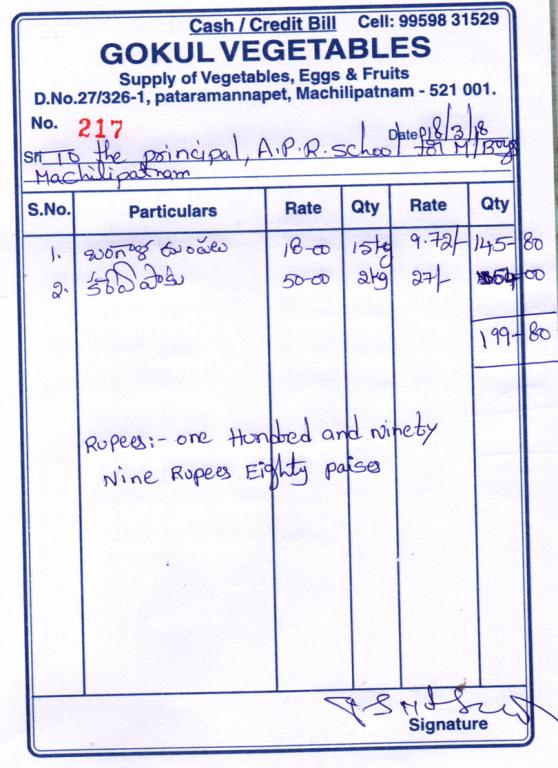 Cash / Credit Bill Cell: 99598 31529
GOKUL VEGETABLES
Supply of Vegetables, Eggs & Fruits
D.No.27/326-1, pataramannapet, Machilipatnam - 521 001.
No. 217
Date 18/3/18
Sri To the principal, A.P.R. school for M/Boys
Machilipatnam
S.No. Particulars Rate Qty Rate Qty
1. బంగాళ దుంపలు 18-00 15kg 9.72/- 145-80
2. కరివేపాకు 50-00 2kg 27/- 54-00
199-80
Rupees:- one Hundred and ninety
Nine Rupees Eighty paises
Signature